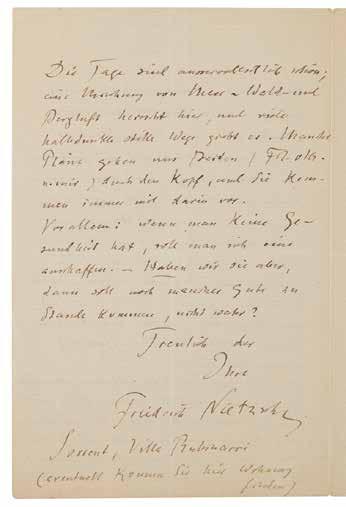 Die Tage sind ausserordentlich schön;
eine Mischung von Meer-Wald-und
Bergluft herrscht hier, und viele
halbdunkle stille Wege giebt es. Manche
Pläne gehen uns Beiden (
u. mir) durch den Kopf, und Sie kom-
men immer mit darin vor.
Vor allem: wenn man keine Ge-
sundheit hat, soll man sich eine
anschaffen. — Haben wir sie aber,
dann soll noch mancher Gute zu
Stande kommen, nicht wahr?
Treulich der
Ihre
Friedrich Nietzsche
Sorrent, Villa Rubinacci
(eventuell können Sie hier Wohnung
finden)